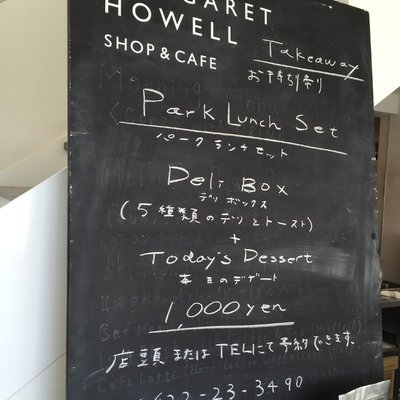 GARET
HOWELL
SHOP & CAFE
Takeaway
お持ち帰り
Park Lunch Set
パークランチセット
Deli Box
デリボックス
(5種類のデリとトースト)
+
Today's Dessert
本日のデザート
1,000yen
店頭またはTELにて予約できます。
Set Menu
Cafe Latte (Hot
422-23-3490